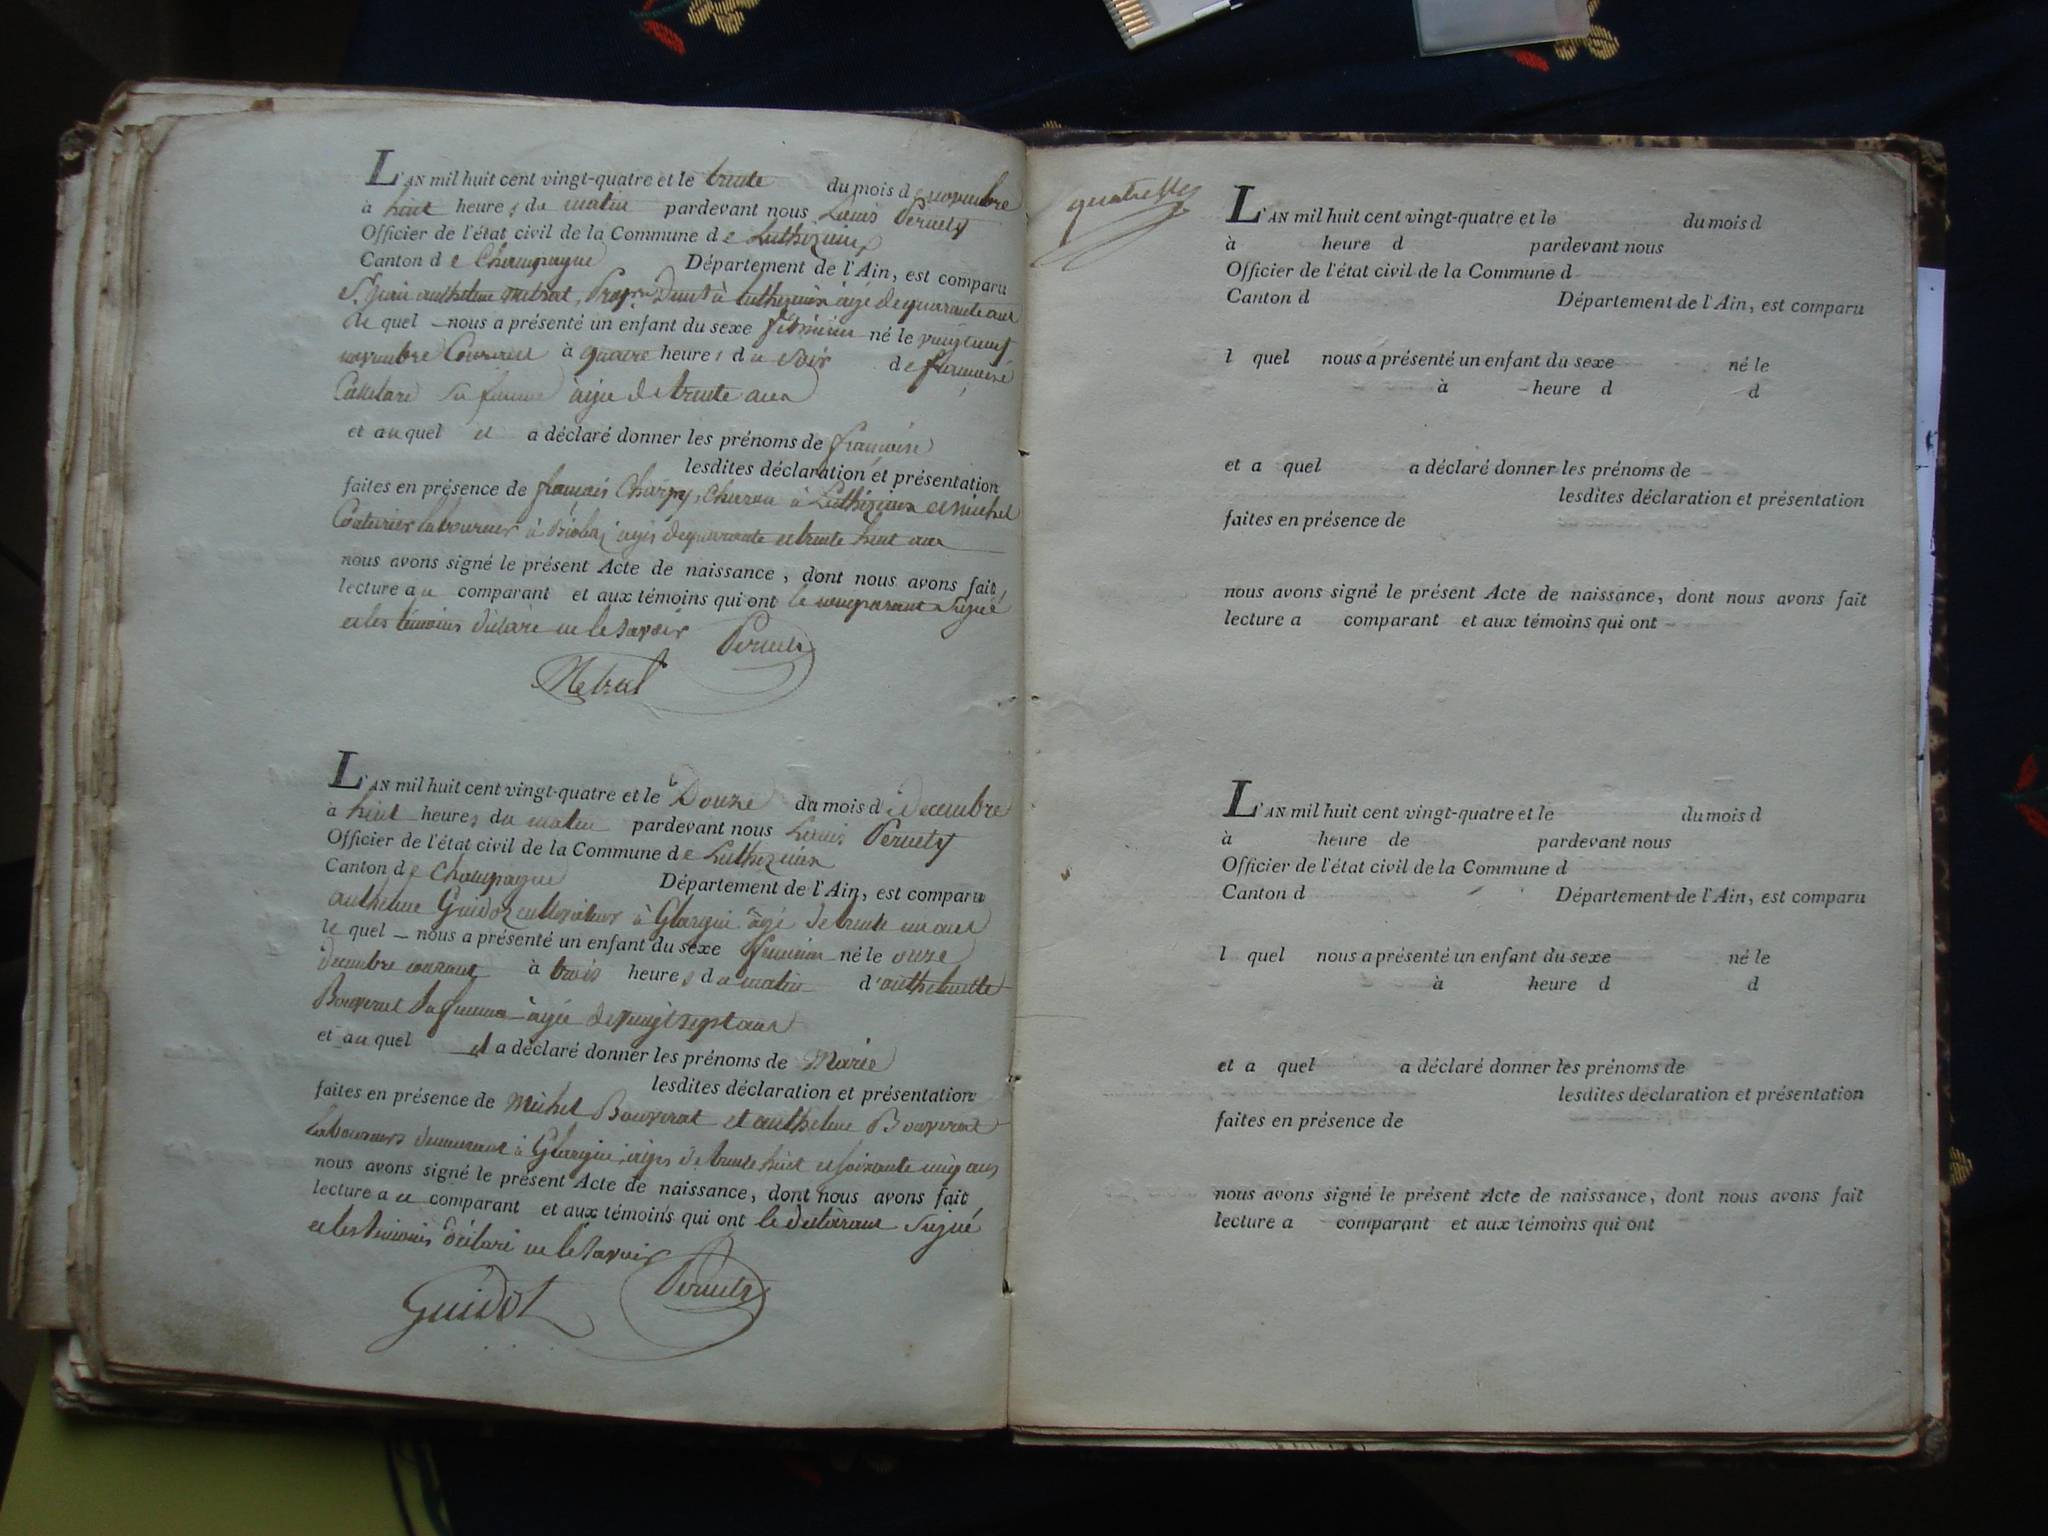 L'AN mil huit cent vingt-quatre et le trente du mois de novembre
à huit heures du matin pardevant nous Louis Peruety
Officier de l'état civil de la Commune de Luthezieux
Canton de Champagne Département de l'Ain, est comparu
Sr. Jean anthelme Netral, à Luthezieux âgé de quarante ans
le quel nous a présenté un enfant du sexe féminin né le vingt neuf
novembre Courant à quatre heures du soir de françoise
sa femme âgée de trente ans
et au quel il a déclaré donner les prénoms de françoise
lesdites déclaration et présentation
faites en présence de français Charpy, à Luthezieux et michel
Couturier laboureur à agés de quarante et trente huit ans
nous avons signé le présent Acte de naissance, dont nous avons fait
lecture au comparant et aux témoins qui ont le comparant signé
et les témoins déclaré ne le savoir Peruety
Netral
L'AN mil huit cent vingt-quatre et le Douze du mois de decembre
à huit heures du matin pardevant nous Louis Peruety
Officier de l'état civil de la Commune de Luthezieux
Canton de Champagne Département de l'Ain, est comparu
anthelme Guidoz cultivateur à Glargin âgé de trente un ans
le quel nous a présenté un enfant du sexe feminin né le onze
decembre courant à trois heures du matin d'anthelmette
Bouverat sa femme âgée de vingt sept ans
et au quel il a déclaré donner les prénoms de Marie
lesdites déclaration et présentation
faites en présence de Michel Bouverat et anthelme Bouverat
laboureurs demeurant à Glargin, agés de trente huit et soixante cinq ans
nous avons signé le présent Acte de naissance, dont nous avons fait
lecture au comparant et aux témoins qui ont le déclarant signé
et les témoins déclaré ne le savoir
Guidot Peruety
L'AN mil huit cent vingt-quatre et le du mois d
à heure d pardevant nous
Officier de l'état civil de la Commune d
Canton d Département de l'Ain, est comparu
l quel nous a présenté un enfant du sexe né le
à heure d d
et a quel a déclaré donner les prénoms de
lesdites déclaration et présentation
faites en présence de
nous avons signé le présent Acte de naissance, dont nous avons fait
lecture a comparant et aux témoins qui ont
L'AN mil huit cent vingt-quatre et le du mois d
à heure de pardevant nous
Officier de l'état civil de la Commune d
Canton d Département de l'Ain, est comparu
l quel nous a présenté un enfant du sexe né le
à heure d d
et a quel a déclaré donner les prénoms de
lesdites déclaration et présentation
faites en présence de
nous avons signé le présent Acte de naissance, dont nous avons fait
lecture a comparant et aux témoins qui ont